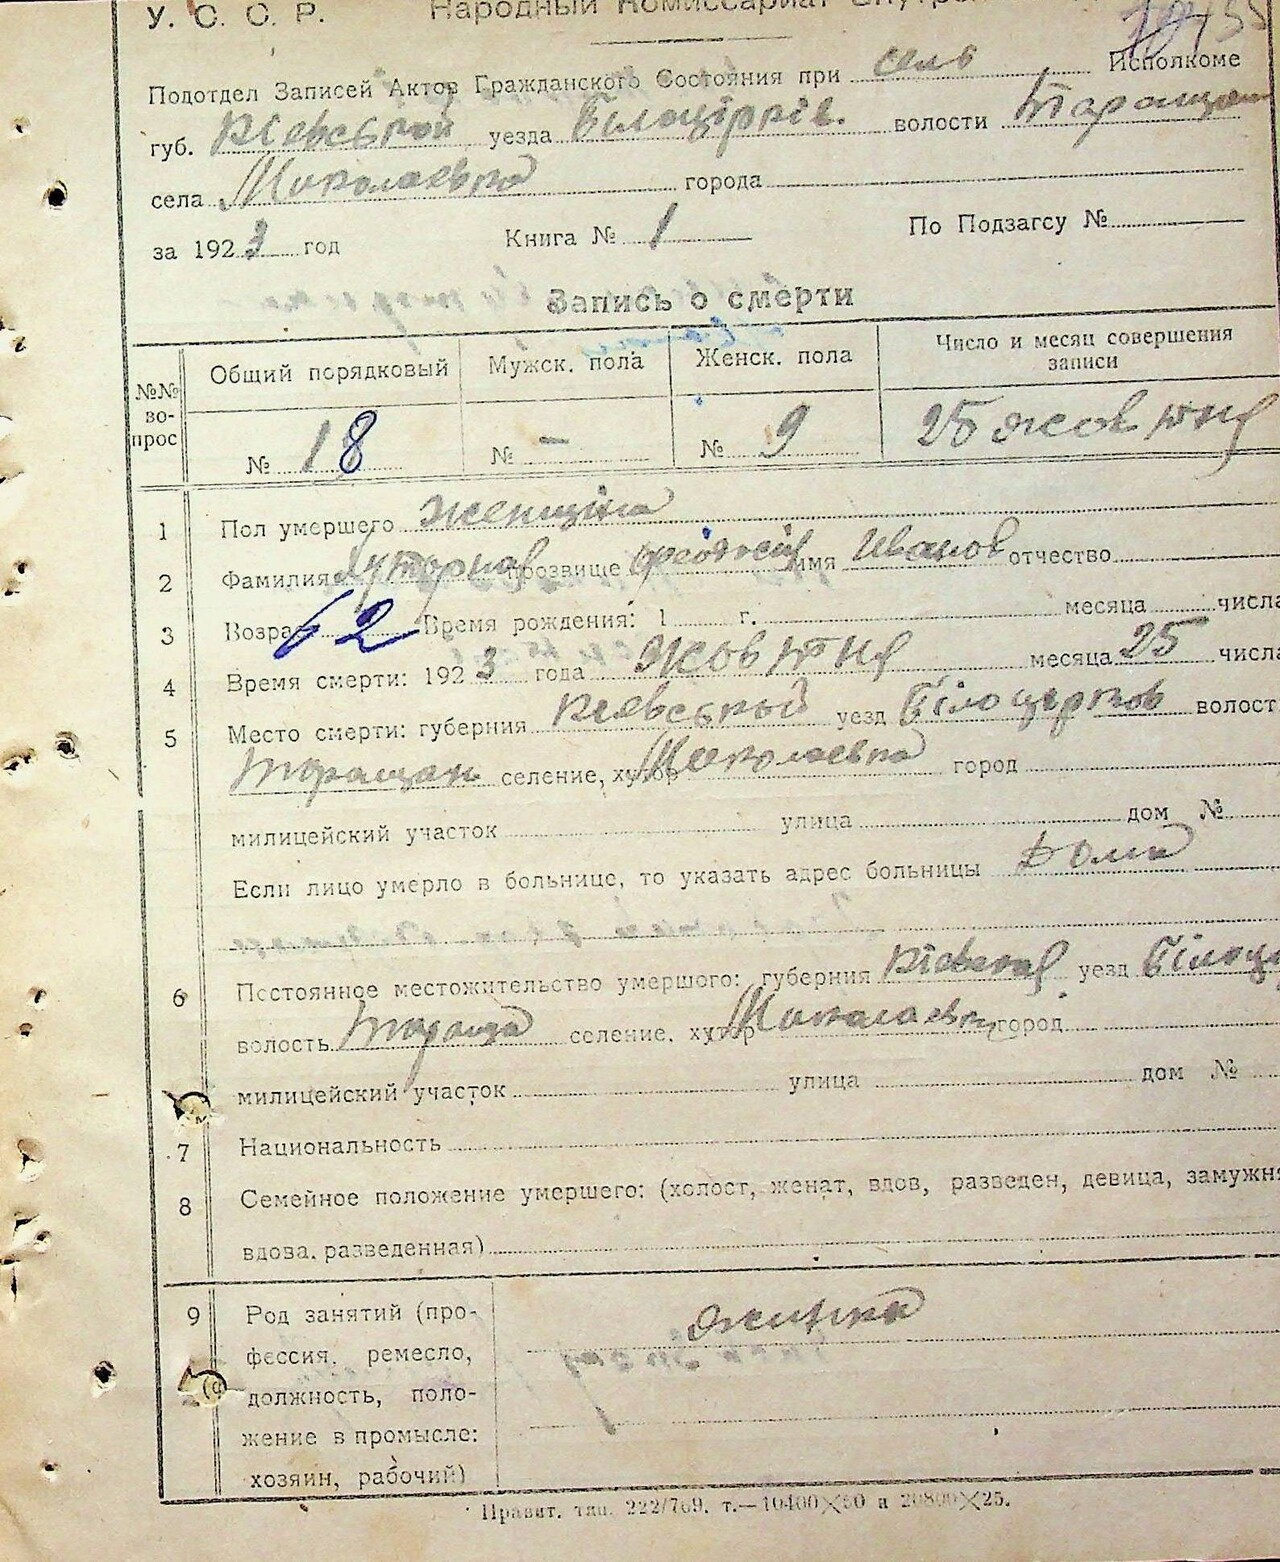 У. С. С. Р. Народный Комиссариат
Подотдел Записей Актов Гражданского Состояния при сель Исполкоме
губ. Кіевськой уезда Білоцірків. волости Таращан
села Миколаевка города
за 1923 год Книга № 1 По Подзагсу №
Запись о смерти
№№ вопрос Общий порядковый Мужск. пола Женск. пола Число и месяц совершения записи
№ 18 № – № 9 25 жовтня
1 Пол умершего женщіна
2 Фамилия прозвище Феодосія имя Іванов отчество
3 Возраст 62 Время рождения: 1 г. месяца числа
4 Время смерти: 1923 года жовтня месяца 25 числа
5 Место смерти: губерния Кіевськый уезд Білоцерков волост
Таращан селение, хутор Миколаевка город
милицейский участок улица дом №
Если лицо умерло в больнице, то указать адрес больницы Дома
6 Постоянное местожительство умершого: губерния уезд Білоц
волость Тараща селение, хутор Миколаевк город
милицейский участок улица дом №
7 Национальность
8 Семейное положение умершего: (холост, женат, вдов, разведен, девица, замужня
вдова, разведенная)
9 Род занятий (про-
фессия, ремесло,
должность, поло-
жение в промысле:
хозяин, рабочий)
Правит. тип. 222/769. т.—10400×50 и 20800×25.